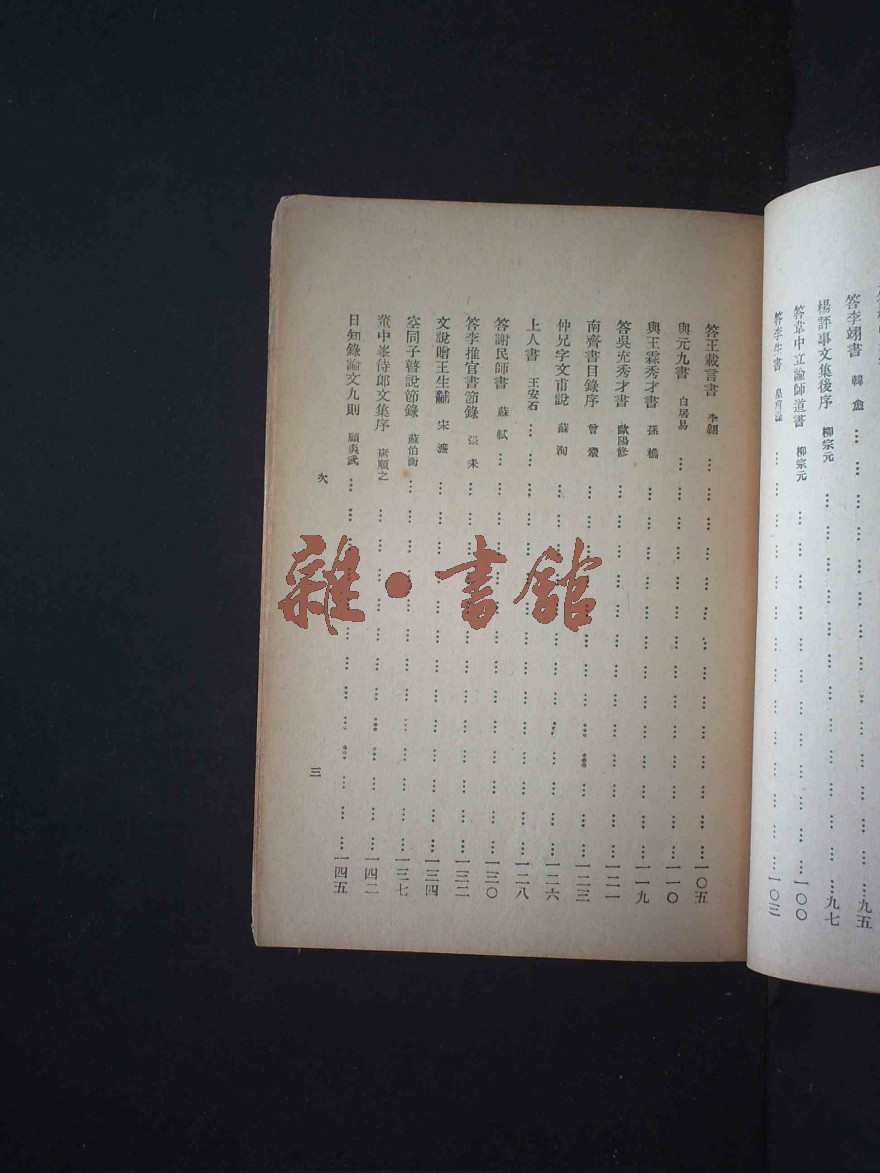 答李翊書 韓愈……九五
楊評事文集後序 柳宗元……九七
答韋中立論師道書 柳宗元……一〇〇
答李生書 皇甫湜……一〇三
答王載言書 李翱……一〇五
與元九書 白居易……一一〇
與王霖秀才書 孫樵……一一九
答吳充秀才書 歐陽修……一二一
南齊書目錄序 曾鞏……一二三
仲兄字文甫說 蘇洵……一二六
上人書 王安石……一二八
答謝民師書 蘇軾……一三〇
答李推官書節錄 張耒……一三二
文說贈王生黼 宋濂……一三四
空同子瞽說節錄 蘇伯衡……一三七
董中峯侍郎文集序 唐順之……一四二
日知錄論文九則 顧炎武……一四五
次
三
雜·書館